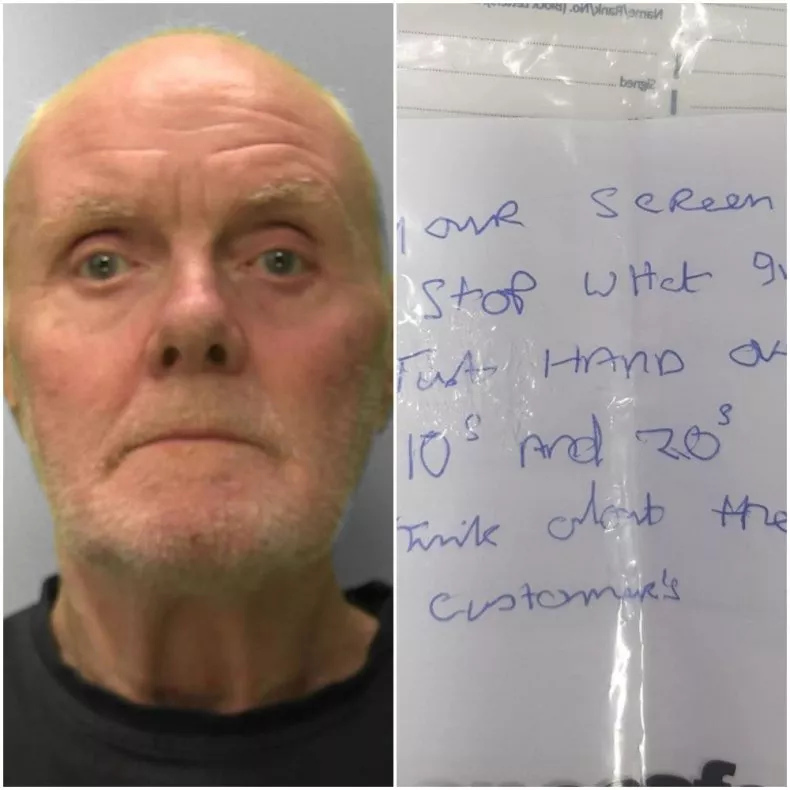 Name/Rank/No.
Signed
your Screen
Stop What
Just HAND
10s And 20s
Tink about the
customer's